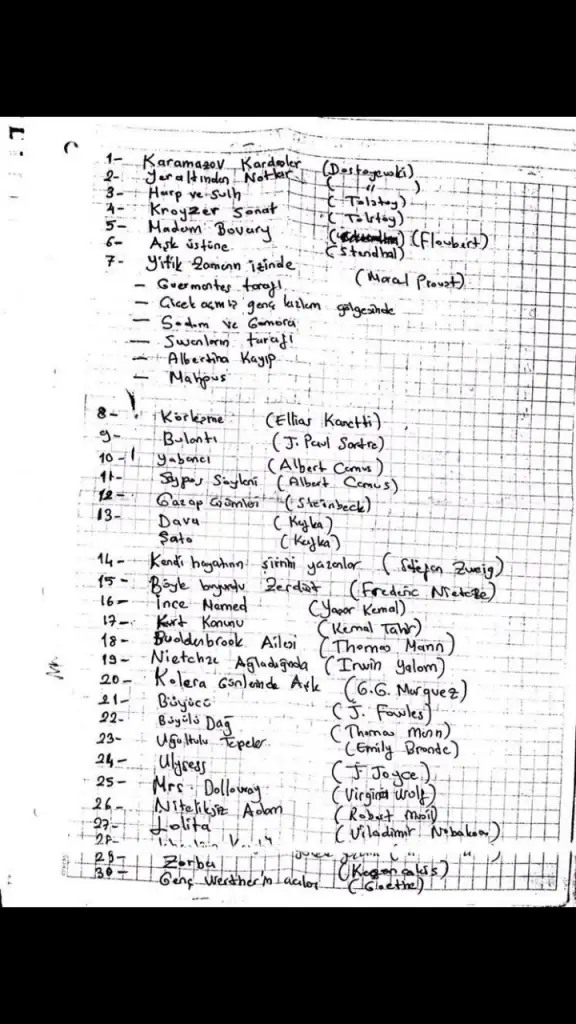 1- Karamazov Kardeşler (Dostoyewski)
2- Yeraltından Notlar ( " )
3- Harp ve Sulh (Tolstoy)
4- Kroyzer Sonat (Tolstoy)
5- Madam Bovary (Floubert)
6- Aşk üstüne (Stendhal)
7- Yitik Zamanın izinde (Marcel Proust)
— Guermantes tarafı
— Çiçek açmış genç kızların gölgesinde
— Sodom ve Gomora
— Swanların tarafı
— Albertina Kayıp
— Mahpus
8- Körleşme (Ellias Kanetti)
9- Bulantı (J. Paul Sartre)
10- Yabancı (Albert Camus)
11- Söyleni (Albert Camus)
12- Gazap Üzümleri (Steinbeck)
13- Dava (Kafka)
Şato (Kafka)
14- Kendi hayatının şiirini yazanlar (Stefan Zweig)
15- Böyle buyurdu Zerdüşt (Frederic Nietzche)
16- İnce Memed (Yaşar Kemal)
17- Kurt Kanunu (Kemal Tahir)
18- Buddenbrook Ailesi (Thomas Mann)
19- Nietchze Ağladığında (Irwin Yalom)
20- Kolera Günlerinde Aşk (G.G. Marquez)
21- Büyücü (J. Fowles)
22- Büyülü Dağ (Thomas Mann)
23- Uğultulu Tepeler (Emily Bronde)
24- Ulysess (J Joyce)
25- Mrs. Dolloway (Virgina Wolf)
26- Niteliksiz Adam (Robert Musil)
27- Lolita (Viladimir Nabakov)
28-
29- Zorba (Kazancakis)
30- Genç Werther'in acıları (Goethe)